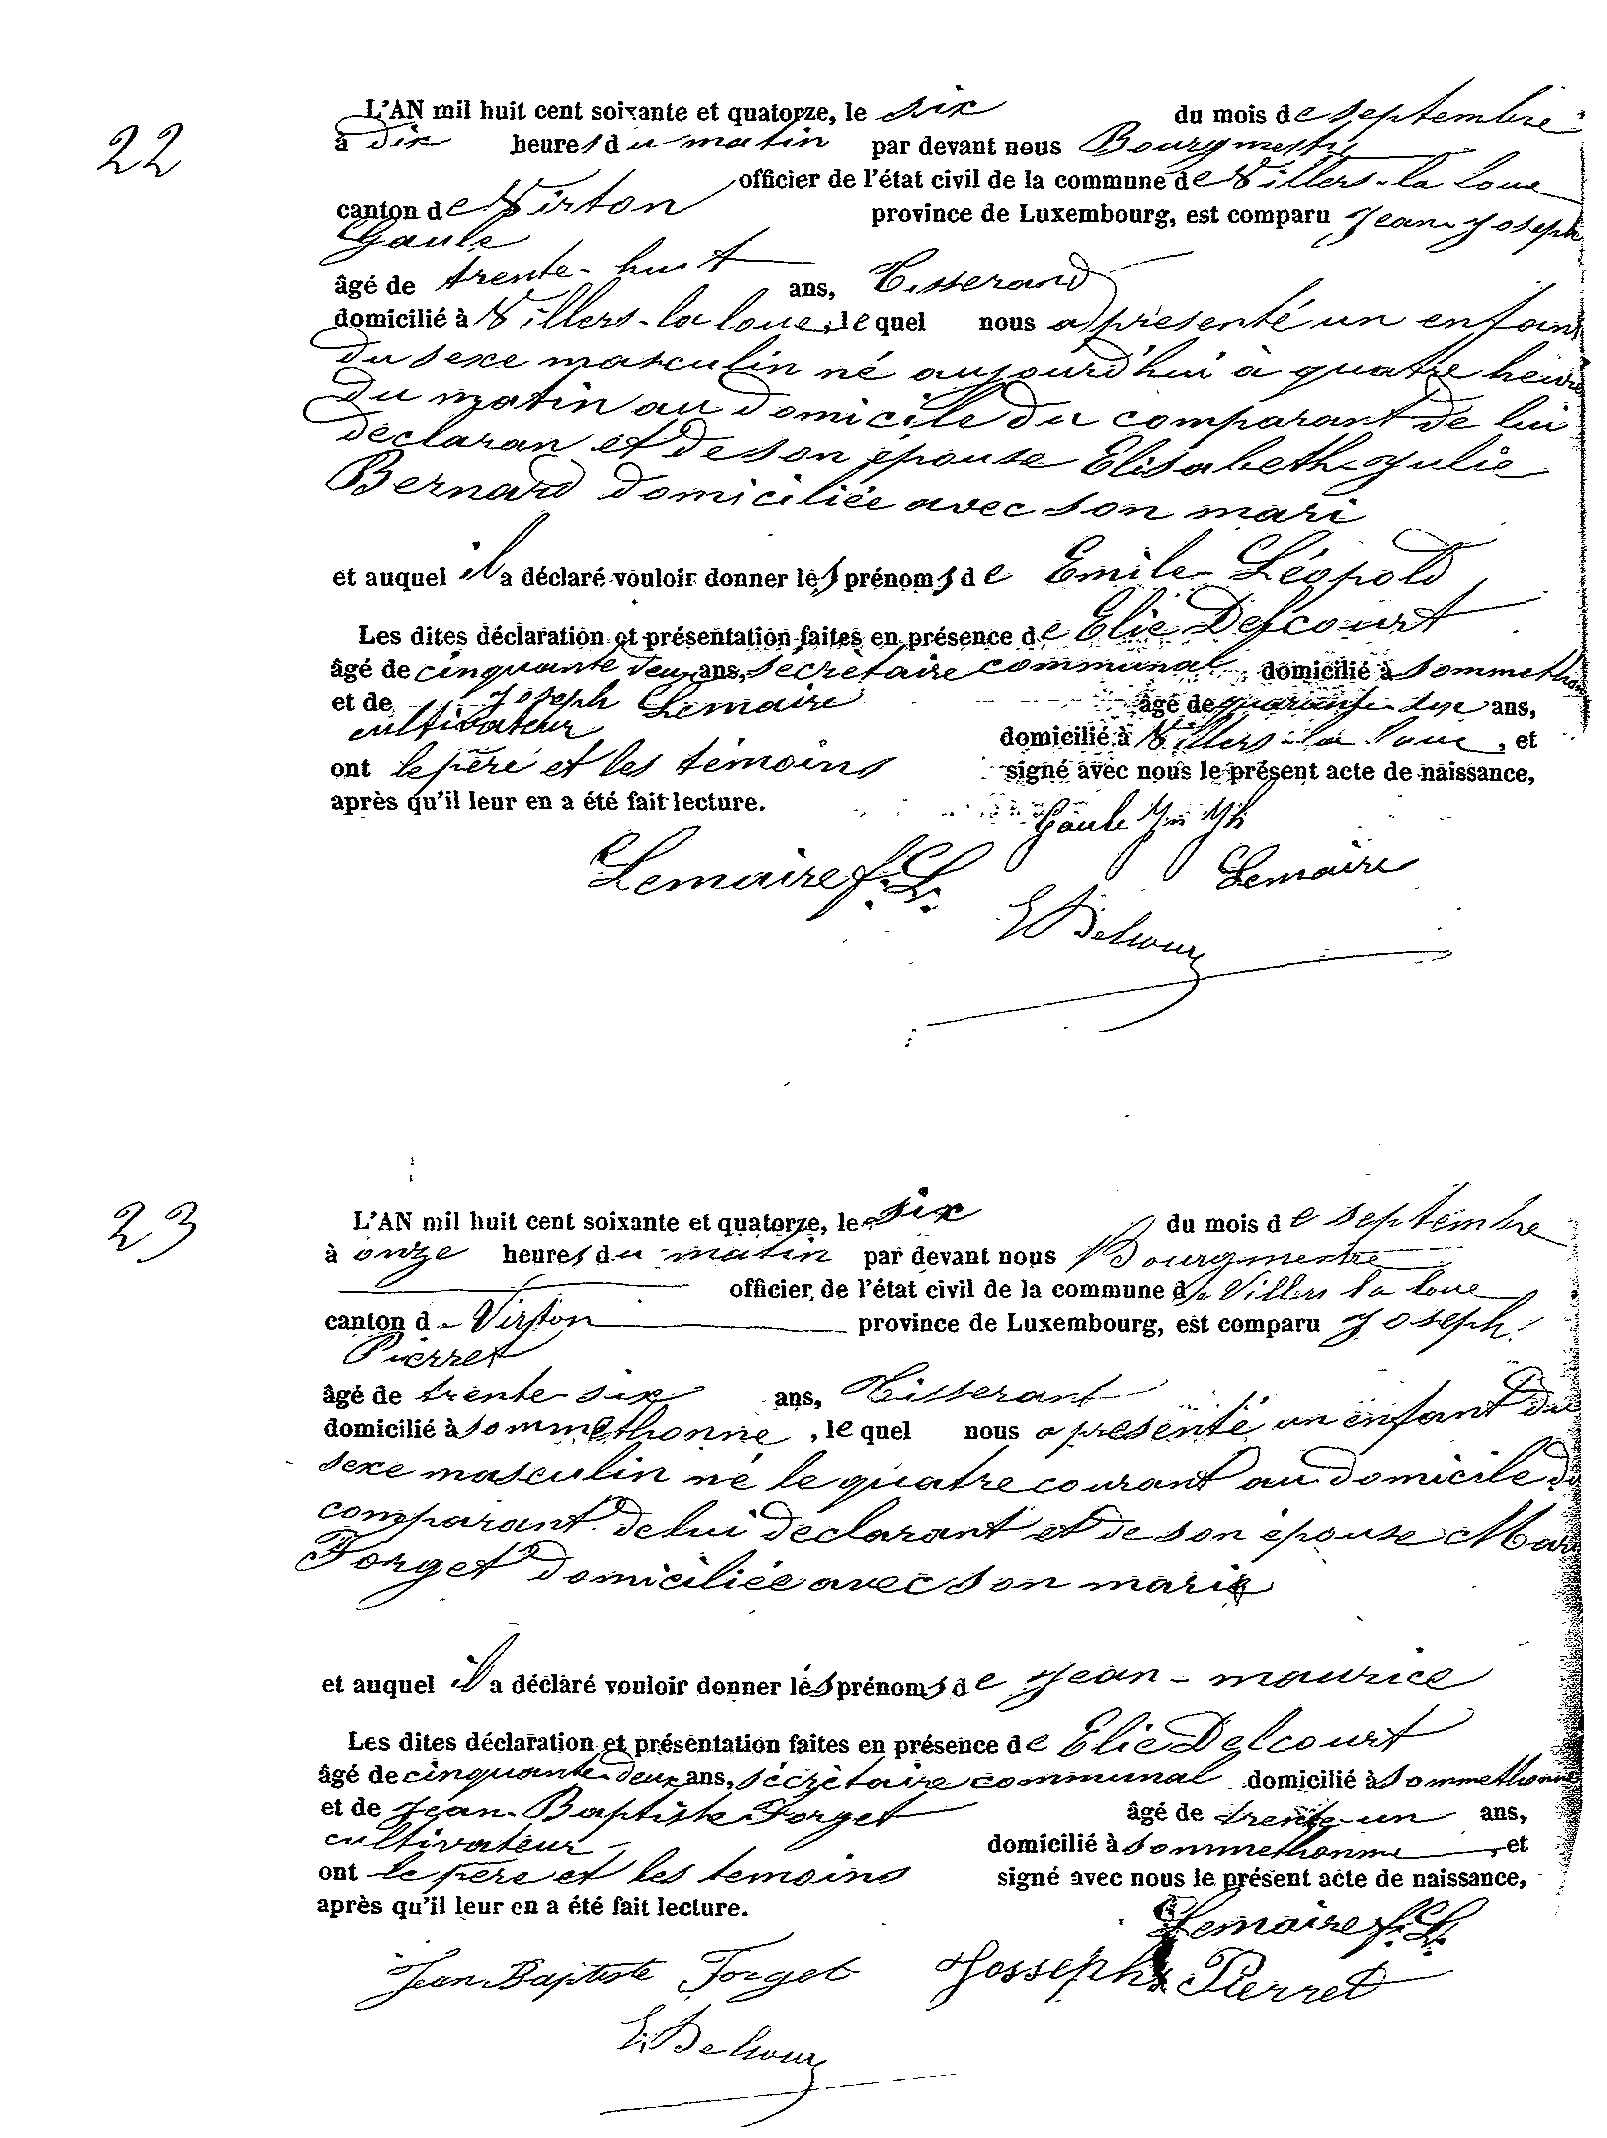 22
L'AN mil huit cent soixante et quatorze, le six du mois de septembre
à dix heures du matin par devant nous Bourgmestre
officier de l'état civil de la commune de Villers-la loue
canton de Virton province de Luxembourg, est comparu Jean Joseph
Gaule
âgé de trente-huit ans, Tisserand
domicilié à Villers-la loue, lequel nous a présenté un enfant
du sexe masculin né aujourd'hui à quatre heures
du matin au domicile du comparant de lui
déclaran et de son épouse Elisabeth Julie
Bernard domiciliée avec son mari
et auquel il a déclaré vouloir donner les prénoms de Emile Léopold
Les dites déclaration et présentation faites en présence de Elie Delcourt
âgé de cinquante deux ans, secrétaire communal domicilié à Sommethonne
et de Joseph Lemaire âgé de quarante-dix ans,
cultivateur domicilié à Villers-la loue, et
ont le père et les témoins signé avec nous le présent acte de naissance,
après qu'il leur en a été fait lecture.
Gaule Jn Jph
Lemaire f. L. Lemaire
E Delcour
23
L'AN mil huit cent soixante et quatorze, le six du mois de septembre
à onze heures du matin par devant nous Bourgmestre
officier de l'état civil de la commune de Villers la loue
canton de Virton province de Luxembourg, est comparu Joseph
Pierret
âgé de trente-six ans, Tisserant
domicilié à Sommethonne, lequel nous a présenté un enfant du
sexe masculin né le quatre courant au domicile du
comparant de lui déclarant et de son épouse Mar
Forget domiciliée avec son marie
et auquel il a déclaré vouloir donner les prénoms de Jean-maurice
Les dites déclaration et présentation faites en présence de Elie Delcourt
âgé de cinquante-deux ans, sécrètaire communal domicilié à Sommethonne
et de Jean-Baptiste Forget âgé de trente-un ans,
cultivateur domicilié à Sommethonne, et
ont le père et les temoins signé avec nous le présent acte de naissance,
après qu'il leur en a été fait lecture.
Lemaire f. L.
Jean Baptiste Forget Josseph Pierret
E. Delcour